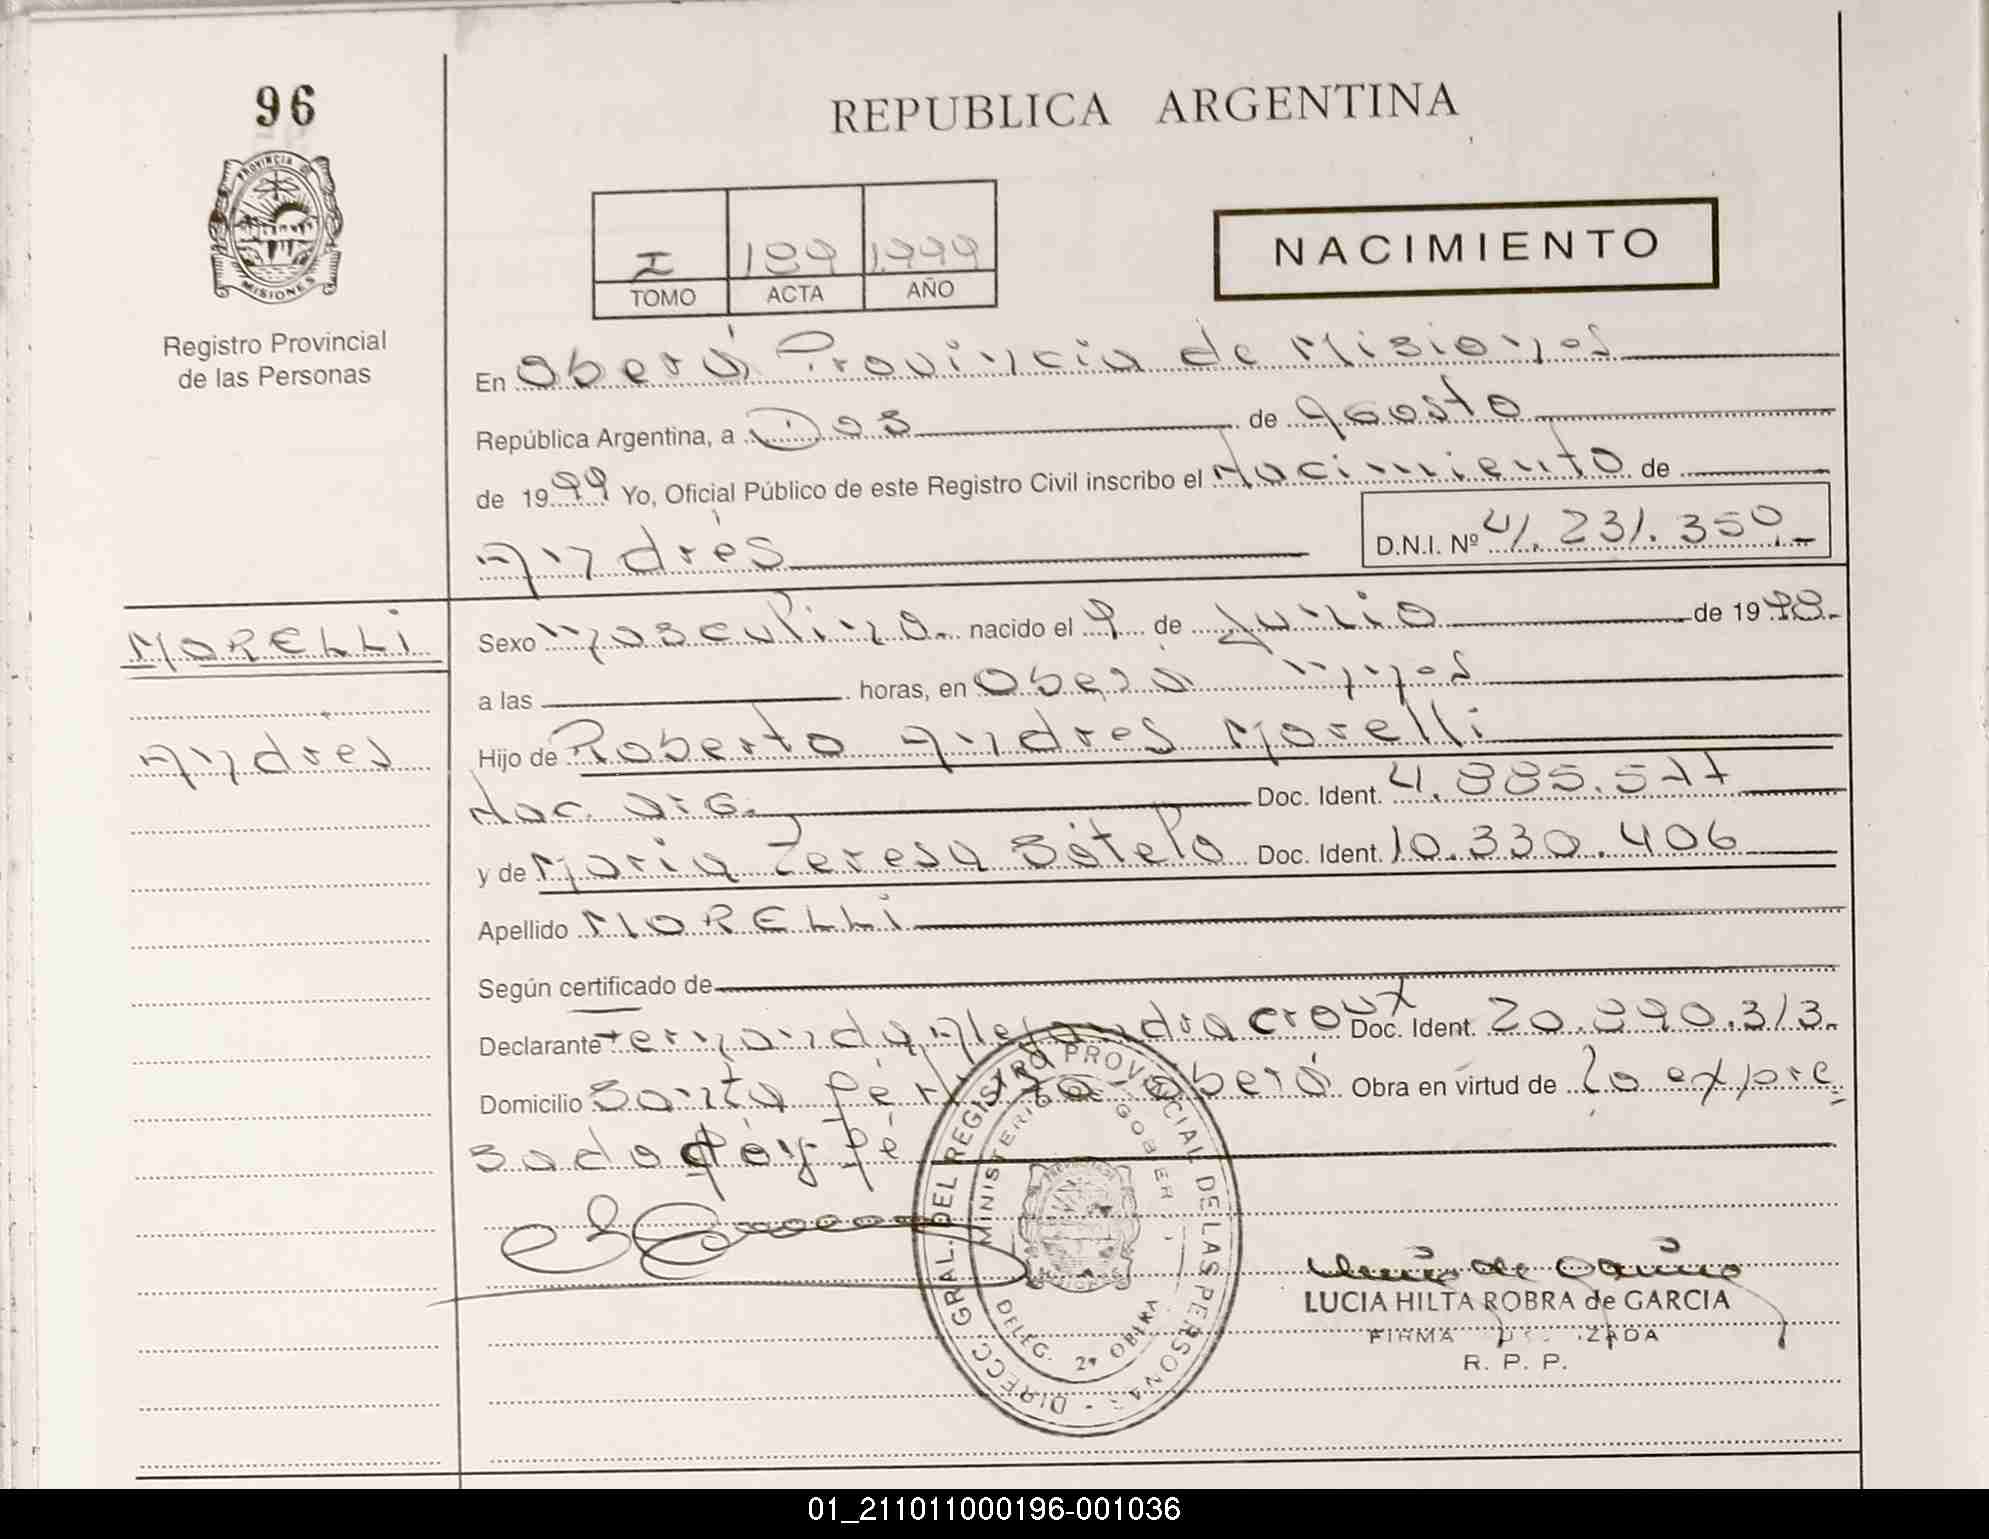 96
PROVINCIA
MISIONES
Registro Provincial
de las Personas
REPUBLICA ARGENTINA
I 189 1.999
TOMO ACTA AÑO
NACIMIENTO
En Oberá Provincia de Misiones
República Argentina, a Dos de Agosto
de 1999 Yo, Oficial Público de este Registro Civil inscribo el Nacimiento de
Andrés
D.N.I. Nº 41.231.350.-
MORELLi
Andres
Sexo masculino. nacido el 9 de Junio de 1998.-
a las horas, en Oberá mnes
Hijo de Roberto Andres Morelli
Nac. arg. Doc. Ident. 4.885.577
y de Maria Teresa Bótelo Doc. Ident. 10.330.406
Apellido MORELLi
Según certificado de
Declarante Fernanda Alejandra Croux Doc. Ident. 20.890.313.
Domicilio Santa Fé Oberá Obra en virtud de lo expre
sado
DIRECC. GRAL. DEL REGISTRO PROVINCIAL DE LAS PERSONAS
MINISTERIO DE GOBIER
DELEG. 2ª OBERA
LUCIA HILTA ROBRA de GARCIA
FIRMA
R. P. P.
01_211011000196-001036